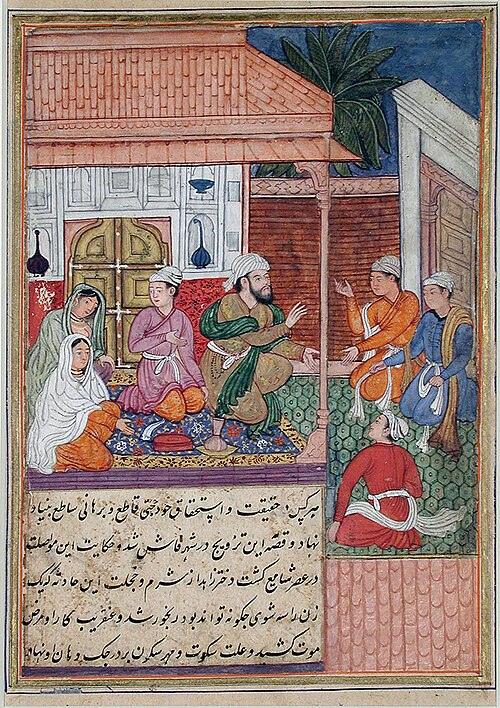 هر کس بر حقیقت و استحقاق خود حجتی قاطع و برهانی ساطع بنیاد
نهاد و قصه این تزویج در شهر فاش شد و حکایت این مواصلت
در عصر شایع گشت دختر زاهد از شرم و خجلت این حادثه که یک
زن را سه شوی چگونه تواند بود رنجور شد و عنقریب کار او بمرض
موت کشید و علت سکوت و مهر سکون بر درجک دهان او نهاد